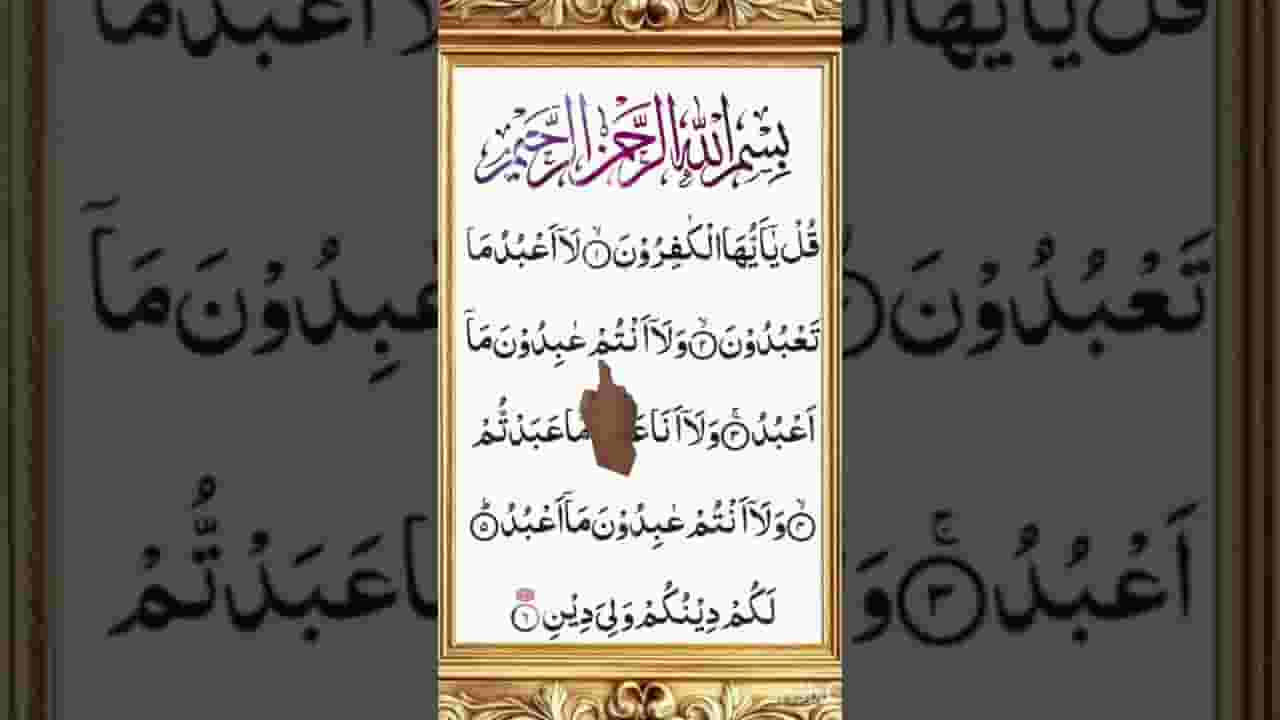 بِسْمِ اللهِ الرَّحْمٰنِ الرَّحِيْمِ
قُلْ يٰۤاَيُّهَا الْكٰفِرُوْنَ ۙ﴿۱﴾ لَاۤ اَعْبُدُ مَا
تَعْبُدُوْنَ ۙ﴿۲﴾ وَلَاۤ اَنْتُمْ عٰبِدُوْنَ مَاۤ
اَعْبُدُ ۚ﴿۳﴾ وَلَاۤ اَنَا مَّا عَبَدْتُّمْ
ۙ﴿۴﴾ وَلَاۤ اَنْتُمْ عٰبِدُوْنَ مَاۤ اَعْبُدُ ؕ﴿۵﴾
لَكُمْ دِيْنُكُمْ وَلِيَ دِيْنِ ﴿۶﴾